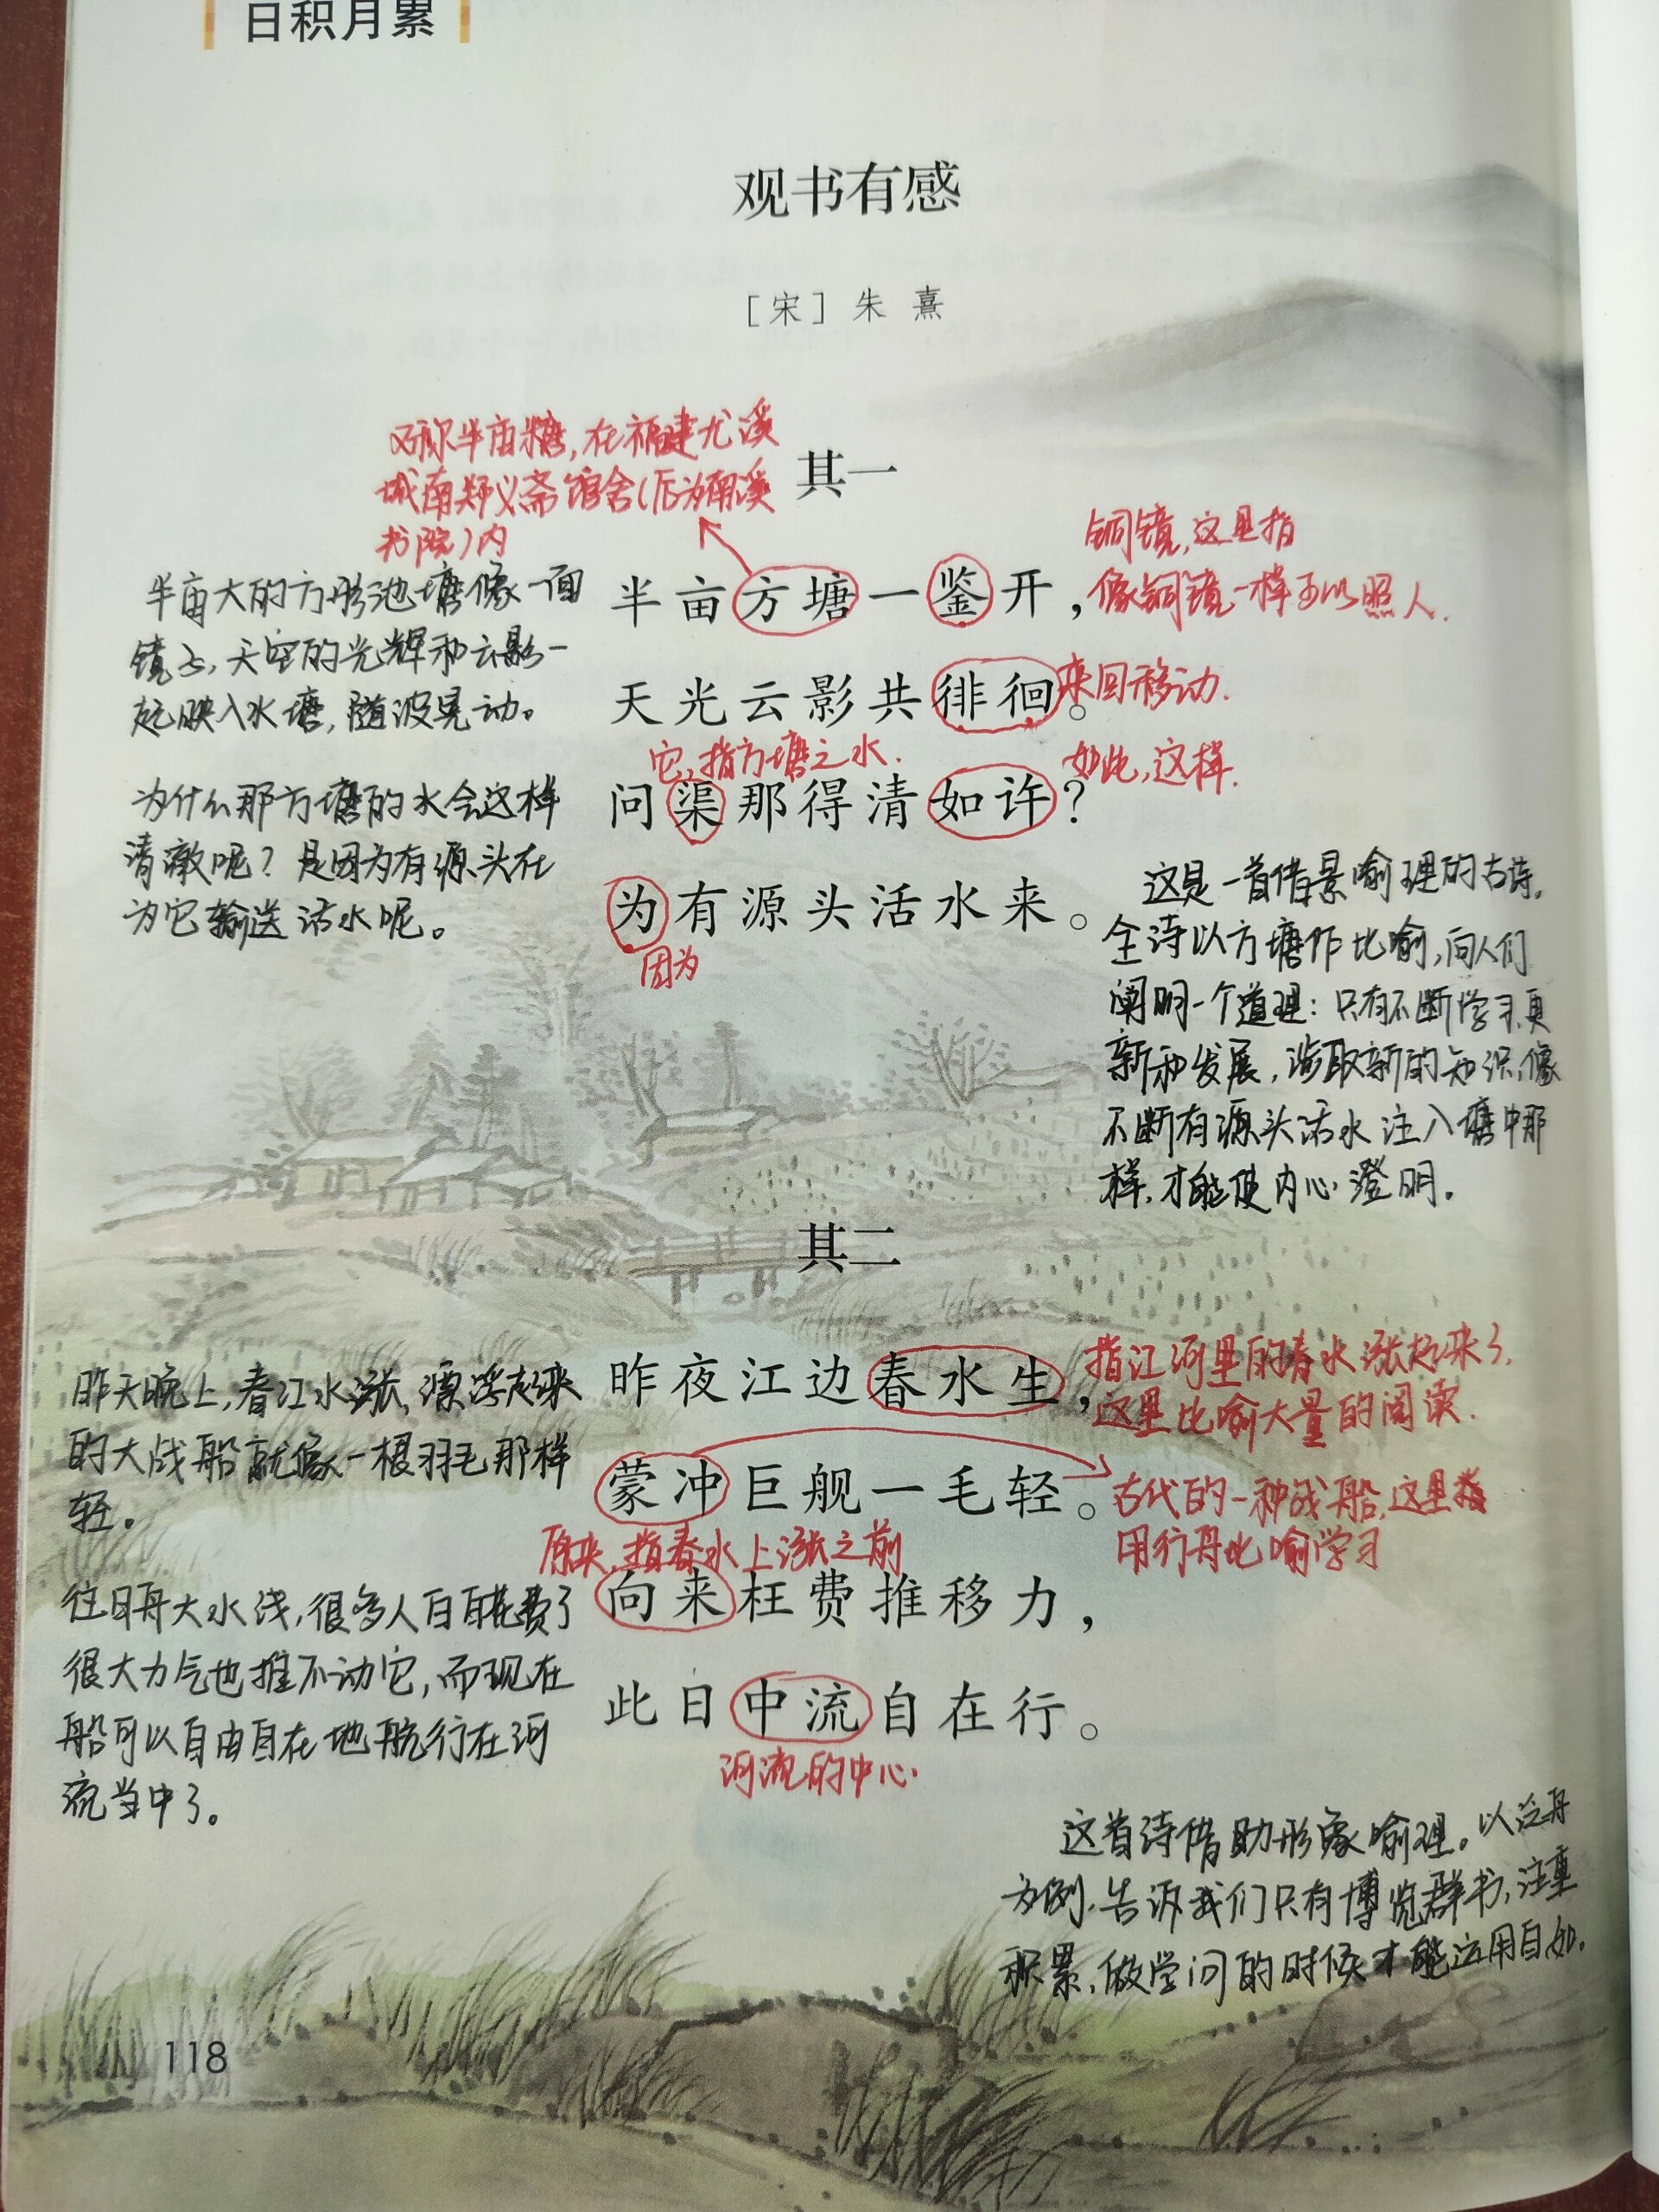 日积月累
观书有感
［宋］朱熹
又称半亩塘，在福建尤溪
城南郑义斋馆舍（后为南溪
书院）内
其一
铜镜，这里指
像铜镜一样可以照人．
半亩大的方形池塘像一面
镜子，天空的光辉和云影一
起映入水塘，随波晃动。
半亩方塘一鉴开，
天光云影共徘徊。
来回移动．
它，指方塘之水．
如此，这样．
问渠那得清如许？
为什么那方塘的水会这样
清澈呢？是因为有源头在
为它输送活水呢。
为有源头活水来。
因为
这是一首借景喻理的古诗。
全诗以方塘作比喻，向人们
阐明一个道理：只有不断学习、更
新和发展，涉取新的知识，像
不断有源头活水注入塘中那
样，才能使内心澄明。
其二
昨夜江边春水生，
指江河里的春水涨起来了，
这里比喻大量的阅读．
昨天晚上，春江水涨，漂浮起来
的大战船就像一根羽毛那样
轻。
蒙冲巨舰一毛轻。
古代的一种战船，这里指
用行舟比喻学习
原来，指春水上涨之前
向来枉费推移力，
往日舟大水浅，很多人白白花费了
很大力气也推不动它，而现在
船可以自由自在地航行在河
流当中了。
此日中流自在行。
河流的中心．
这首诗借助形象喻理。以泛舟
为例，告诉我们只有博览群书，注重
积累，做学问的时候才能运用自如。
118